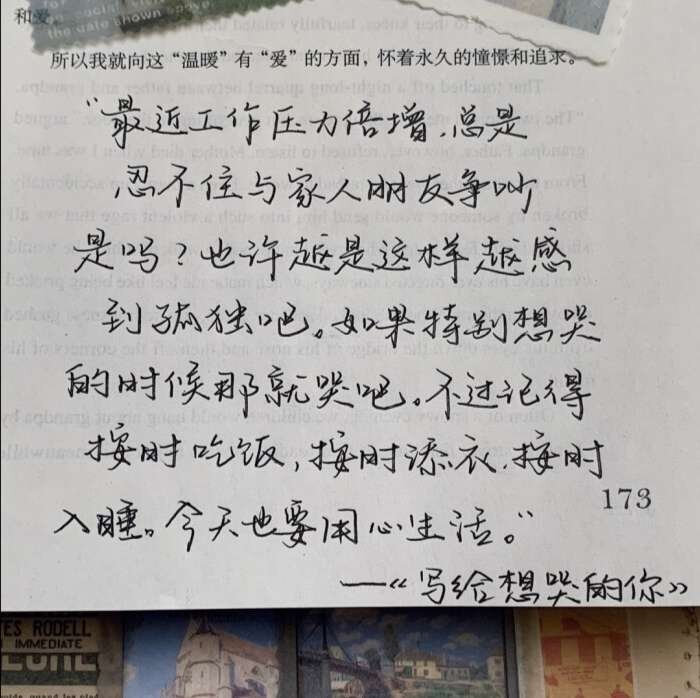 和爱。
the gate shown above
所以我就向这“温暖”有“爱”的方面，怀着永久的憧憬和追求。
“最近工作压力倍增，总是
忍不住与家人朋友争吵
是吗？也许越是这样越感
到孤独吧。如果特别想哭
的时候那就哭吧。不过记得
按时吃饭，按时添衣，按时
入睡。今天也要用心生活。”
173
——《写给想哭的你》
ES RODELL
IMMEDIATE